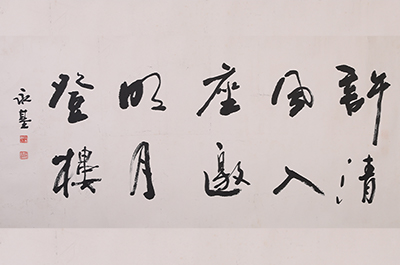 許清
风入
座邀
明月
登樓
永基